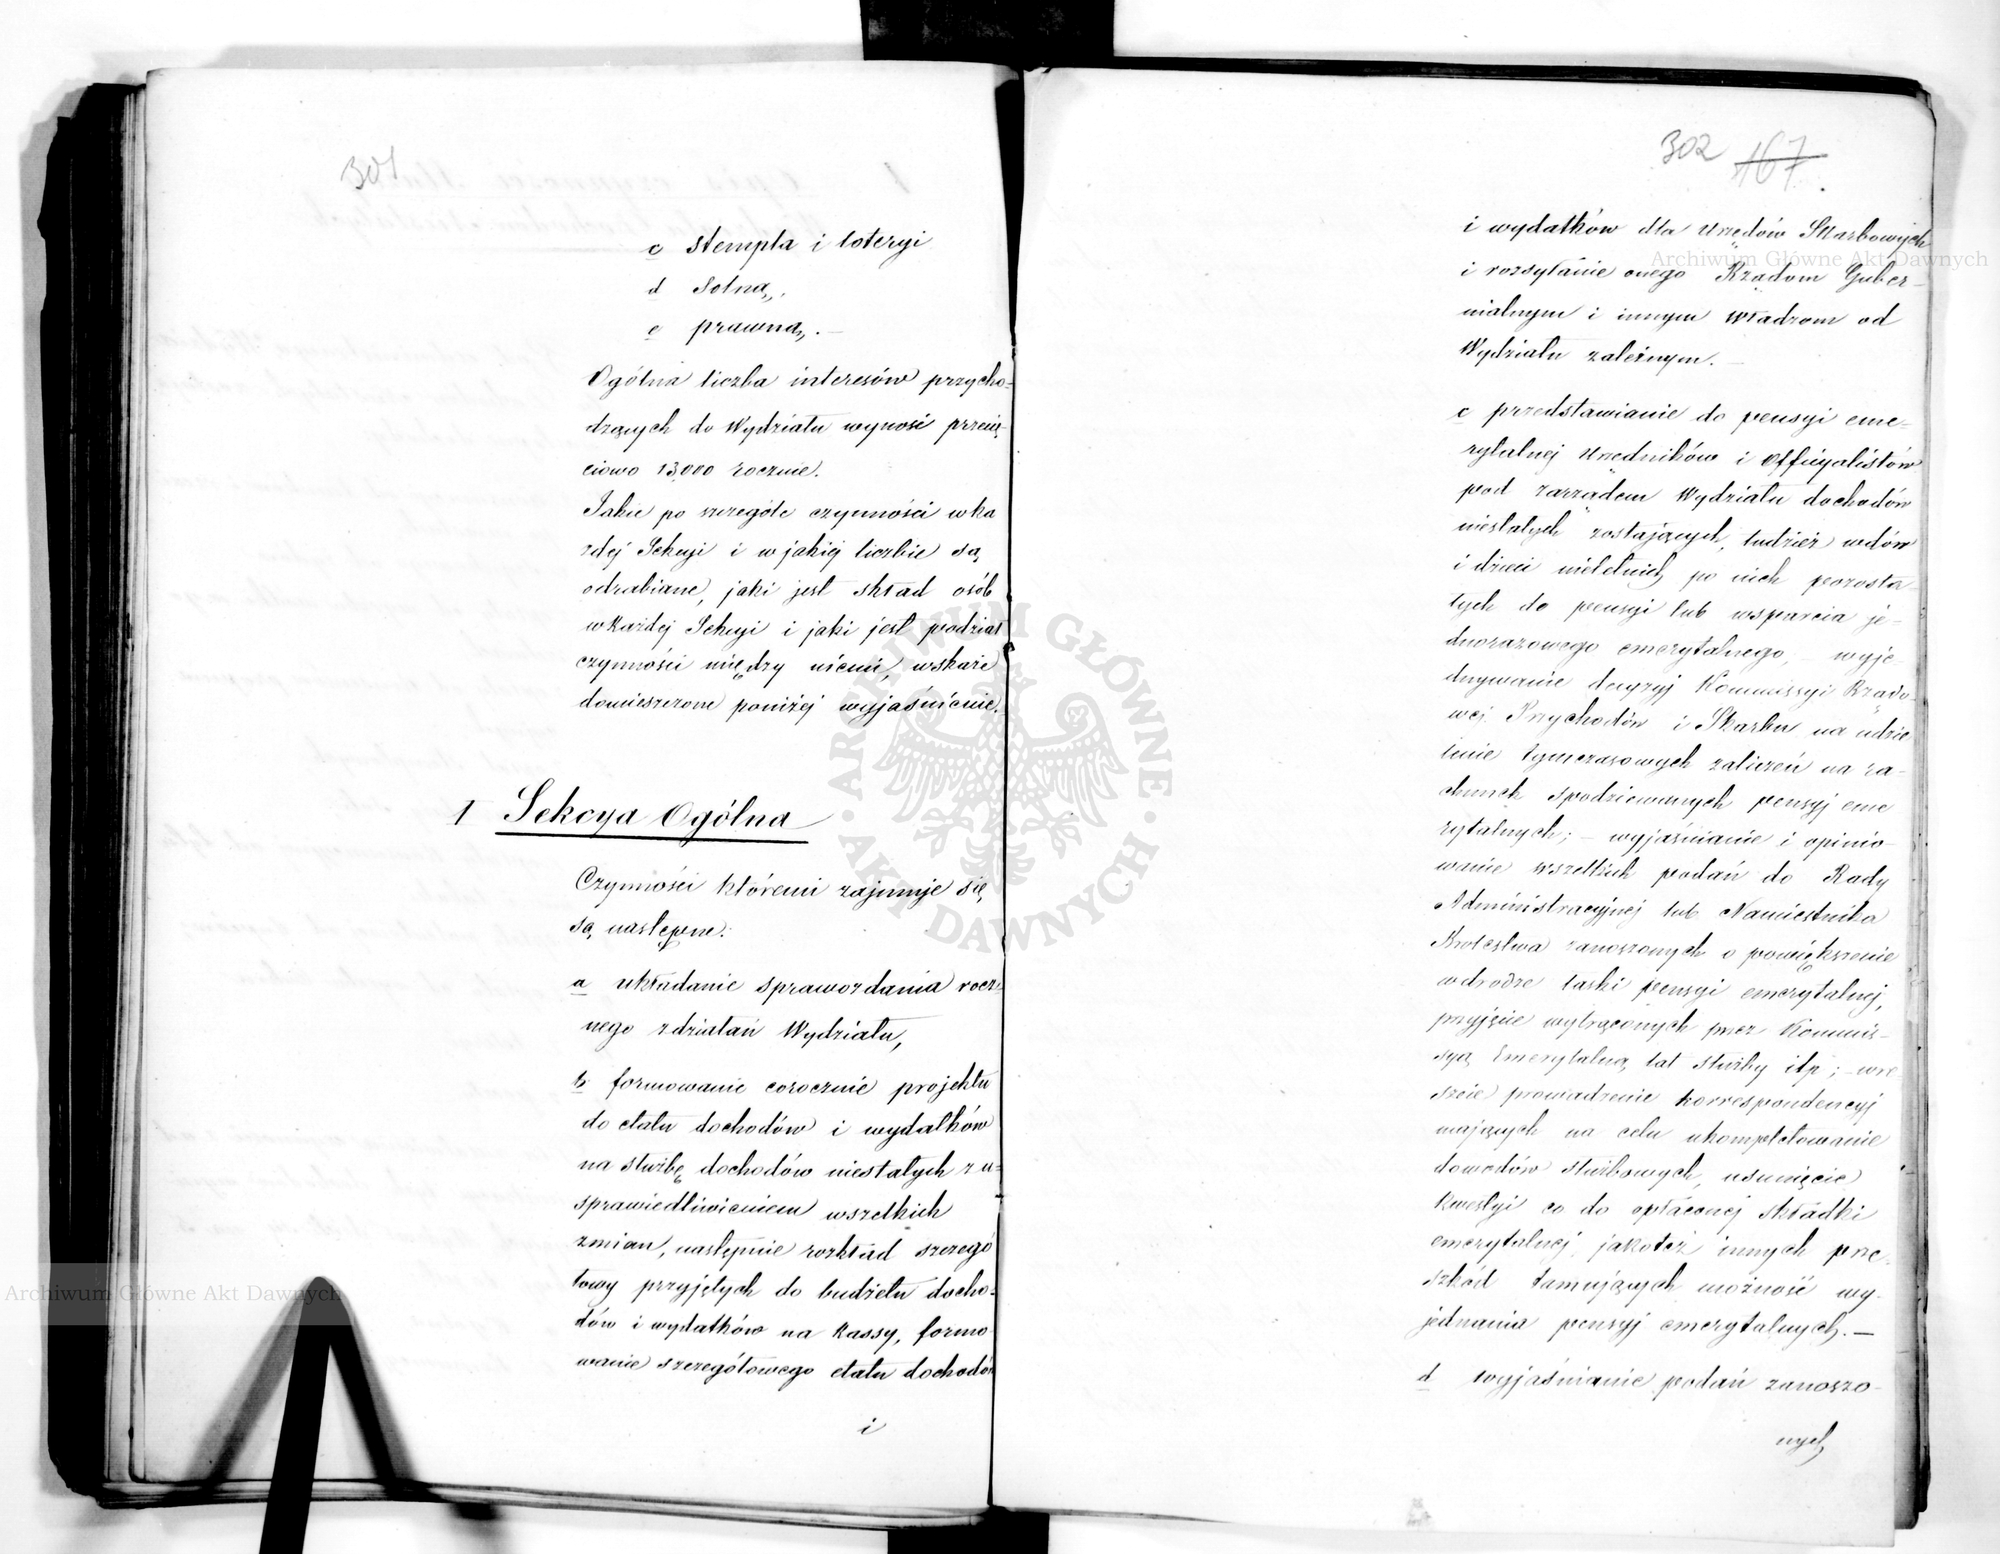 301
c stempla i loteryi
d Solna,
e prawna. —
Ogólna liczba interesów przycho-
dzących do Wydziału wynosi przecię-
ciowo 13,000 rocznie.
Jakie po szczególe czynności w ka
żdej Sekcyi i w jakiej liczbie są
odrabiane, jaki jest skład osób
w każdej Sekcyi i jaki jest podział
czynności między niemi, wskaże
domieszczone poniżej wyjaśnienie.
1 Sekcya Ogólna
Czynności któremi zajmuje się,
są następne:
a układanie sprawozdania rocz-
nego z działań Wydziału,
b formowanie corocznie projektu
do etatu dochodów i wydatków
na służbę dochodów niestałych z u-
sprawiedliwieniem wszelkich
zmian, następnie rozkład szczegó
łowy przyjętych do budżetu docho-
dów i wydatków na kassy, formo
wanie szczegółowego etatu dochodów
i
302 167
i wydatków dla Urzędów Skarbowych
i rozsyłanie onego Rządom Guber-
nialnym i innym Władzom od
Wydziału zależnym. —
c przedstawianie do pensyi eme-
rytalnej Urzedników i Officyalistów
pod zarządem Wydziału dochodów
niestałych zostających, tudzież wdów
i dzieci nieletnich po nich pozosta
łych do pensyi lub wsparcia je-
dnorazowego emerytalnego, — wyje-
dnywanie decyzyj Kommissyi Rządo-
wej Przychodów i Skarbu na udzie
lenie tymczasowych zaliczeń na ra-
chunek spodziewanych pensyj eme
rytalnych; — wyjaśnianie i opinio-
wanie wszelkich podań do Rady
Administracyjnej lub Namiestnika
Królestwa zanoszonych o powiększenie
w drodze łaski pensyi emerytalnej,
przyjęcie wytrąconych przez Kommis-
syą Emerytalną lat służby itp; — wre-
szcie prowadzenie korrespondencyj
mających na celu ukompletowanie
dowodów służbowych, usunięcie
kwestyi co do opłaconej składki
emerytalnej, jakoteż innych prze-
szkód tamujących możność wy-
jednania pensyj emerytalnych. —
d wyjaśnianie podań zanoszo-
nych
Archiwum Główne Akt Dawnych
Archiwum Główne Akt Dawnych
ARCHIWUM GŁÓWNE AKT DAWNYCH